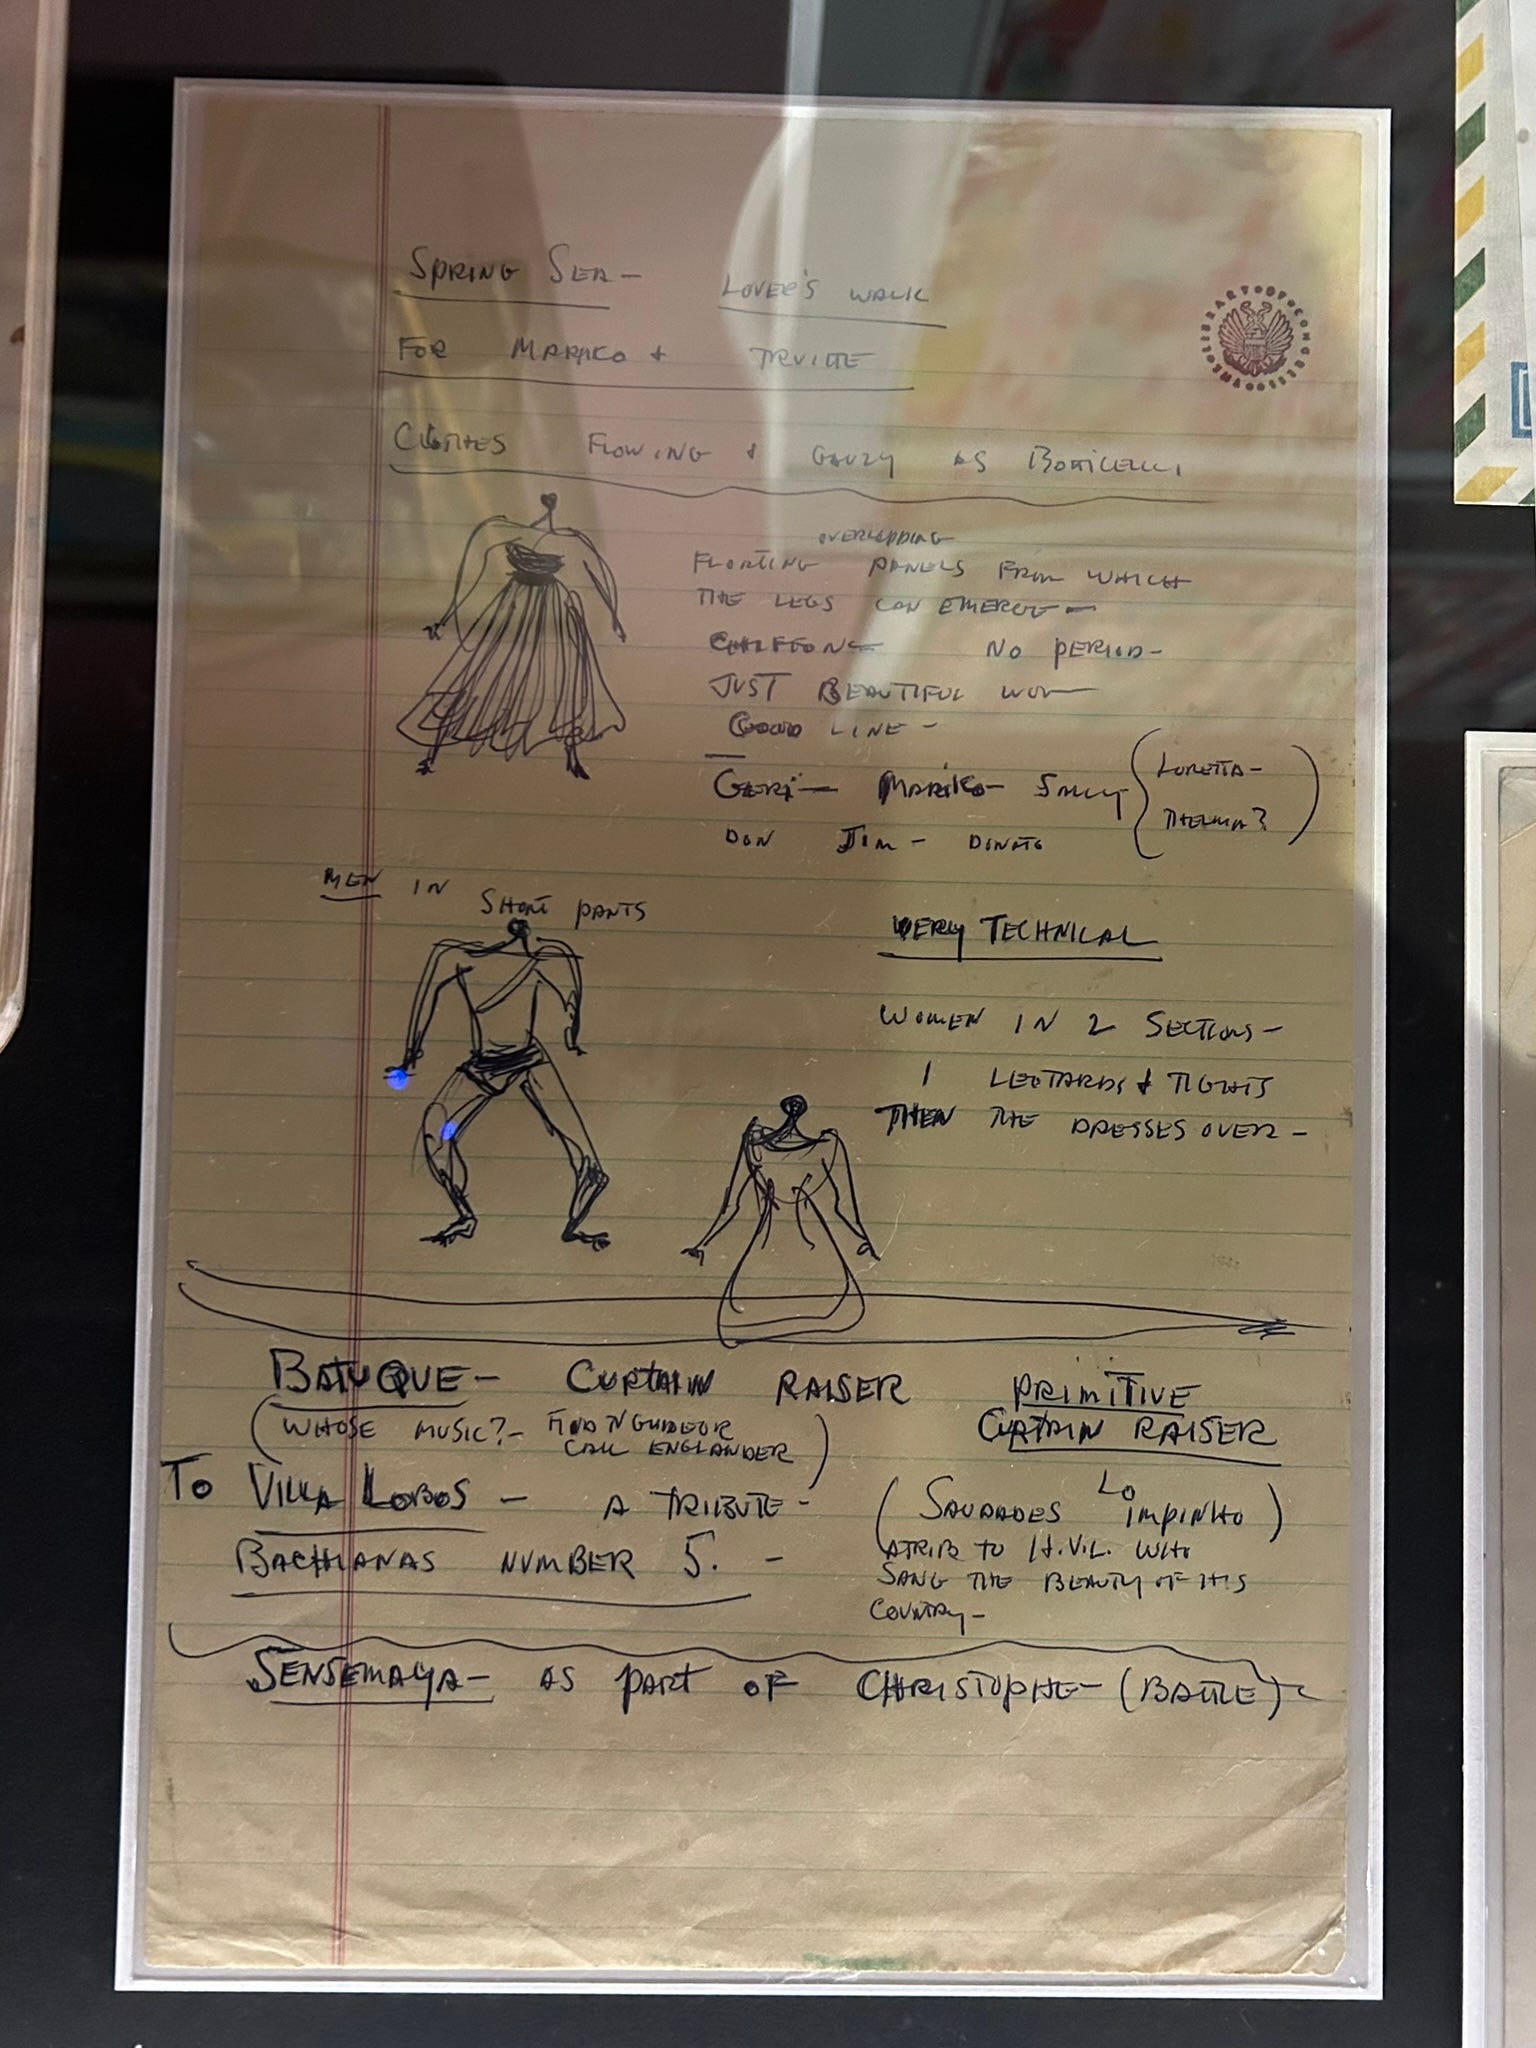 SPRING SEA — LOVER'S WALK
FOR MARIKO + TRUITTE
CLOTHES FLOWING & GAUZY AS BOTTICELLI
OVERLAPPING
FLOATING PANELS FROM WHICH
THE LEGS CAN EMERGE —
CHIFFON — NO PERIOD —
JUST BEAUTIFUL
GOOD LINE —
GERI — MARIKO — SALLY (LORETTA —
THELMA?)
DON JIM — DONATO
MEN IN
SHORT PANTS
VERY TECHNICAL
WOMEN IN 2 SECTIONS —
1 LEOTARDS & TIGHTS
THEN THE DRESSES OVER —
BATUQUE — CURTAIN RAISER PRIMITIVE
CURTAIN RAISER
(WHOSE MUSIC? — FIND
CALL ENGLANDER)
TO VILLA LOBOS — A TRIBUTE —
BACHIANAS NUMBER 5. —
(SAUDADES
TO H.V.L. WHO
SANG THE BEAUTY OF HIS
COUNTRY —
SENSEMAYA — AS PART OF CHRISTOPHE — (BATTLE)
THE LIBRARY OF CONGRESS